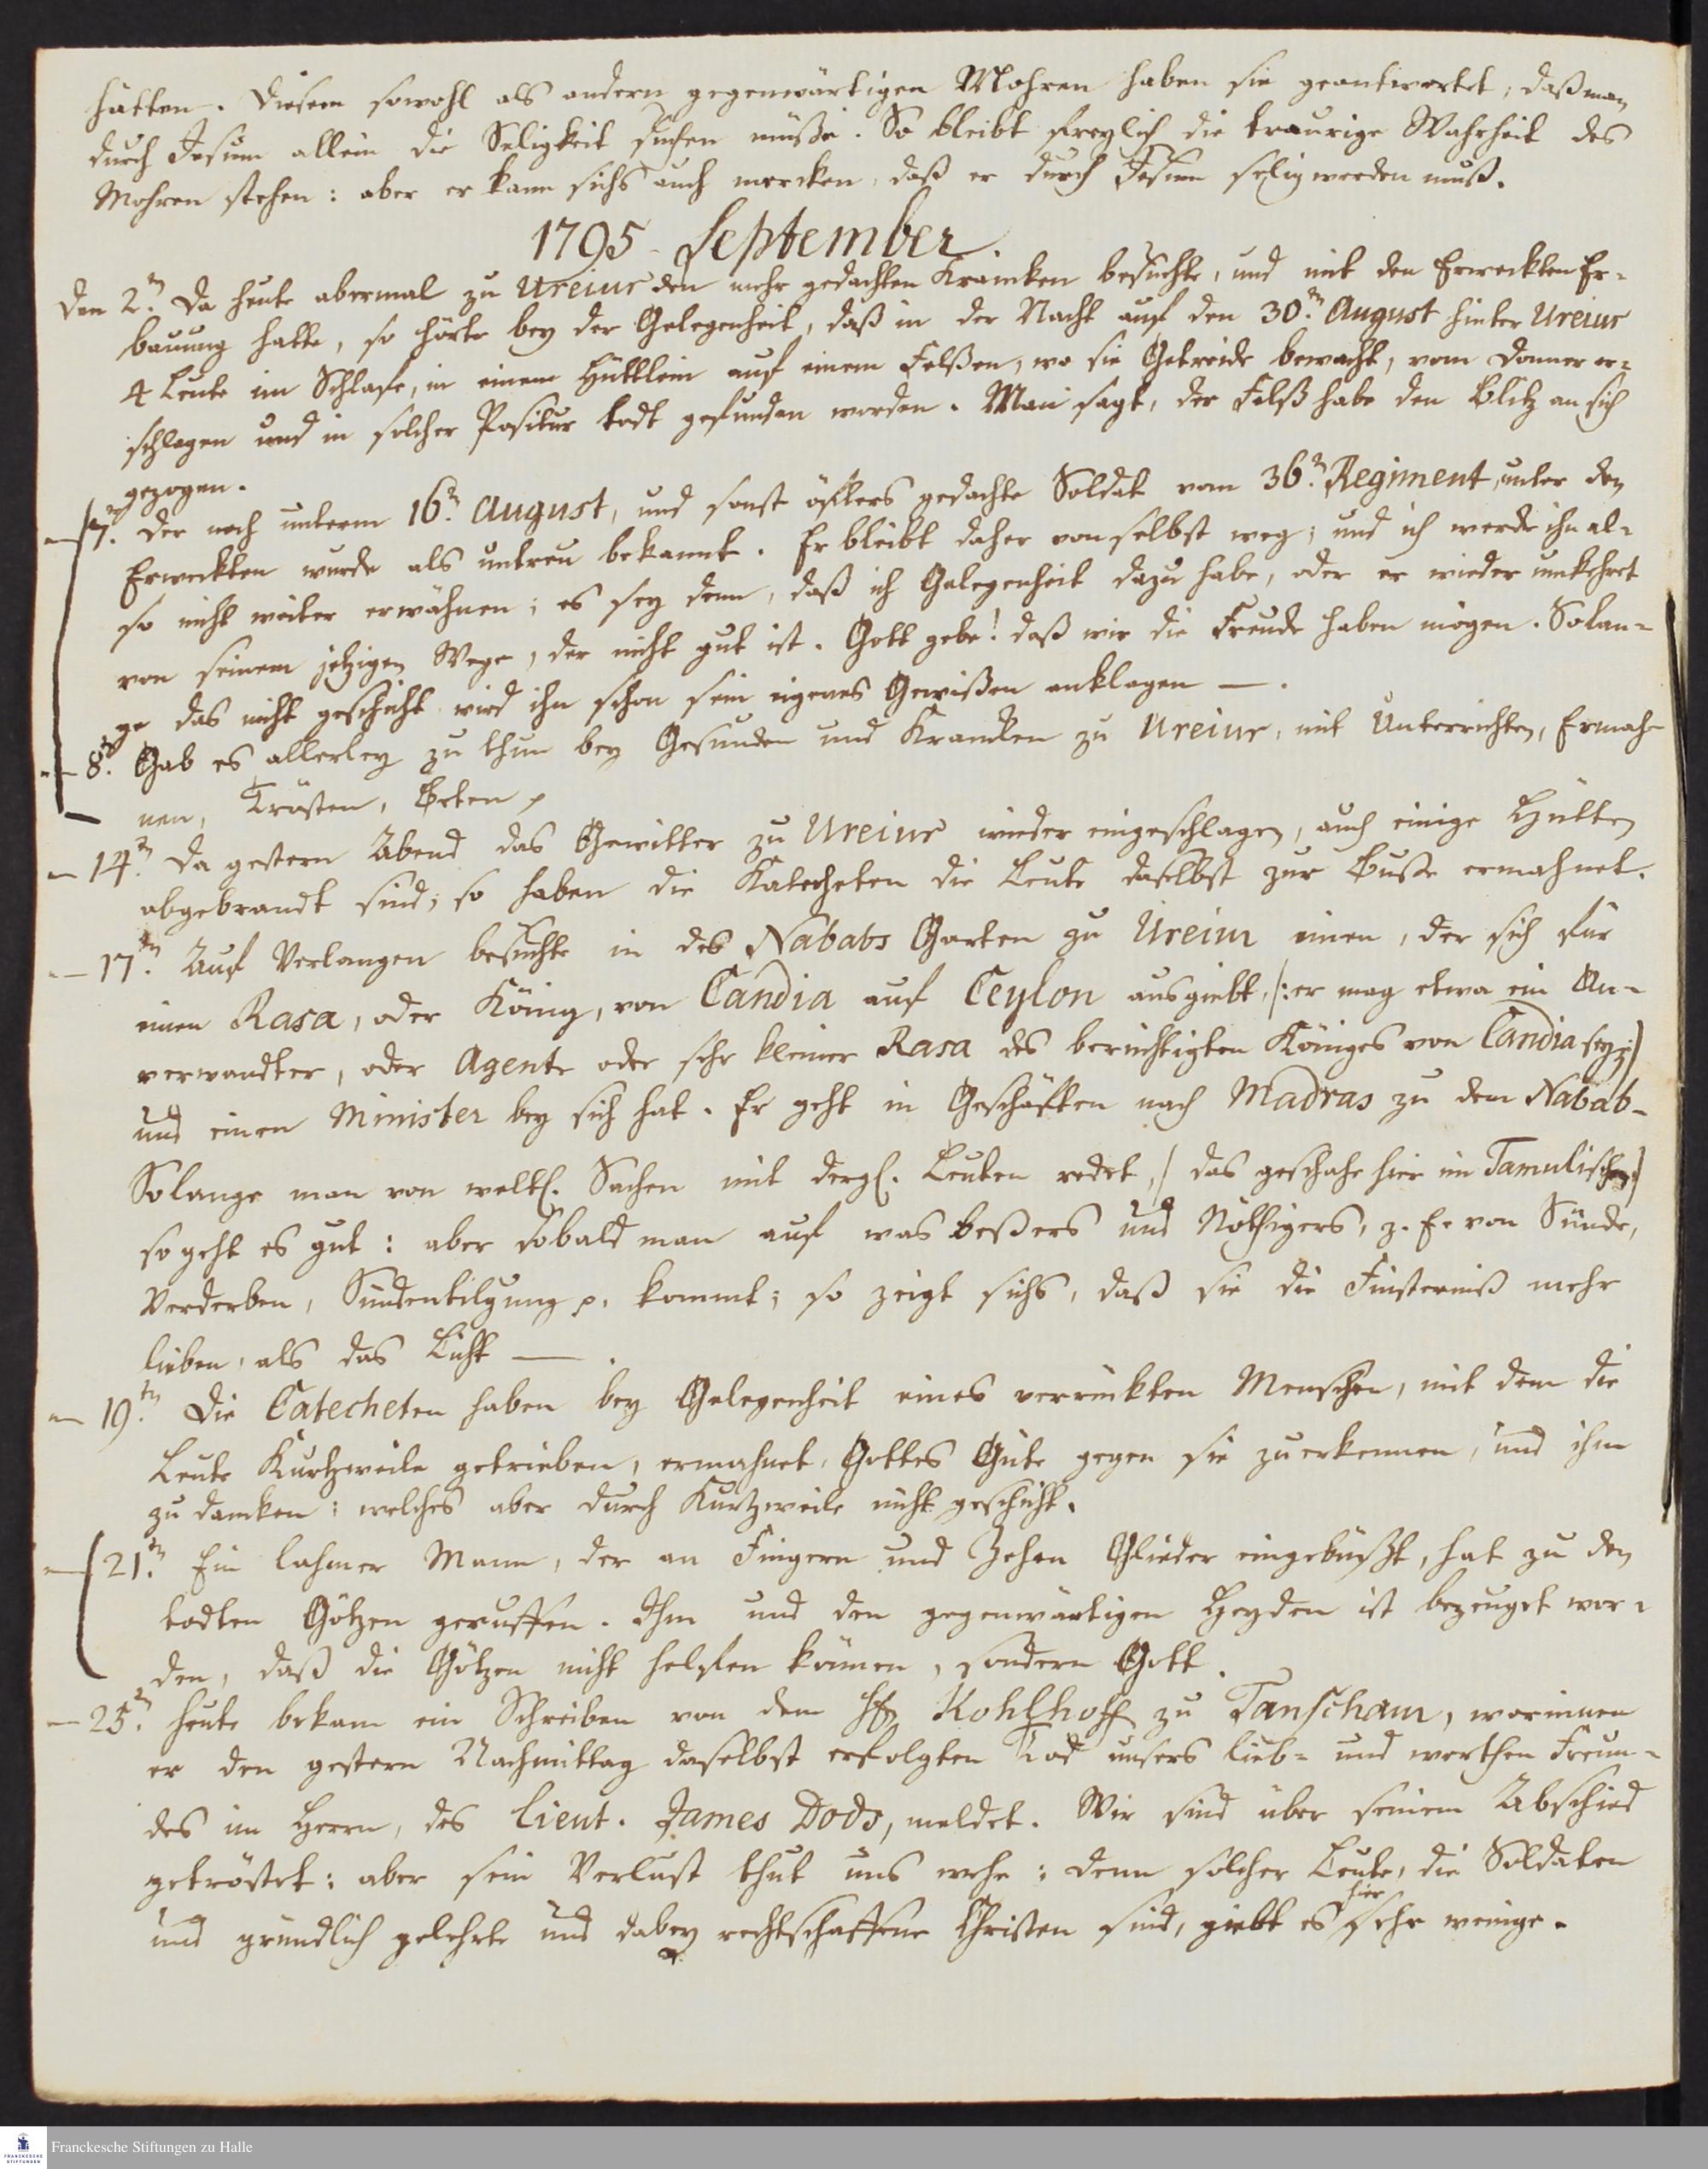 hätten. Diesem sowohl als andern gegenwärtigen Mohren haben sie geantwortet, daß man
durch Jesum allein die Seligkeit suchen müsse. So bleibt freylich die traurige Wahrheit des
Mohren stehen: aber er kann sichs auch mercken, daß er durch Jesum selig werden muß.
1795 September.
Den 2.n Da heute abermal zu Ureiur den mehr gedachten Krancken besuchte, und mit den Erweckten Er-
bauung hatte, so hörte bey der Gelegenheit, daß in der Nacht auf den 30.n August hinter Ureiur
4 Leute im Schlafe, in einem Hüttlein auf einem Felßen, wo sie Getreide bewacht, vom Donner er-
schlagen und in solcher Positur todt gefunden worden. Man sagt, der Felß habe den Blitz an sich
gezogen.
— 7.n Der noch unterm 16.n August, und sonst öfters gedachte Soldat vom 36.n Regiment, unter den
Erweckten wurde als untreu bekannt. Er bleibt daher von selbst weg; und ich werde ihn al-
so nicht weiter erwähnen; es sey denn, daß ich Gelegenheit dazu habe, oder er wieder umkehret
von seinem jetzigen Wege, der nicht gut ist. Gott gebe! daß wir die Freude haben mögen. Solan-
ge das nicht geschicht wird ihn schon sein eigenes Gewißen anklagen —.
— 8.n Gab es allerley zu thun bey Gesunden und Krancken zu Ureiur, mit Unterrichten, Ermah-
nen, Trösten, Beten p
— 14.n Da gestern Abend das Gewitter zu Ureiur wieder eingeschlagen, auch einige Hütten
abgebrandt sind; so haben die Katecheten die Leute daselbst zur Buße ermahnet.
— 17.n Auf Verlangen besuchte in des Nababs Garten zu Ureiur einen, der sich für
einen Rasa, oder König, von Candia auf Ceylon ausgiebt, /: er mag etwa ein An-
verwandter, oder Agente oder sehr kleiner Rasa des berüchtigten Königes von Candia sey :/
und einen Minister bey sich hat. Er geht in Geschäften nach Madras zu dem Nabab-
Solange man von weltl. Sachen mit dergl. Leuten redet, / das geschahe hier im Tamulischen /
so geht es gut: aber sobald man auf was beßers und Nöthigers, z. E. von Sünde,
Verderben, Sündentilgung p. kommt; so zeigt sichs, daß sie die Finsterniß mehr
lieben, als das Licht —.
— 19.n Die Catecheten haben bey Gelegenheit eines verrückten Menschen, mit dem die
Leute Kurtzweile getrieben, ermahnet, Gottes Güte gegen sie zu erkennen, und ihm
zu dancken: welches aber durch Kurtzweile nicht geschicht.
— 21.n Ein lahmer Mann, der an Fingern und Zehen Glieder eingebüßt, hat zu den
todten Götzen geruffen. Ihm und den gegenwärtigen Heyden ist bezeuget wor-
den, daß die Götzen nicht helfen können, sondern Gott.
— 25.n Heute bekam ein Schreiben von dem H. Kohlhoff zu Tanschaur, worinnen
er den gestern Nachmittag daselbst erfolgten Tod unsers lieb- und werthen Freun-
des im Herrn, des Lieut. James Dods, meldet. Wir sind über seinem Abschied
getröstet: aber sein Verlust thut uns wehe: denn solcher Leute, die Soldaten
und gründlich gelehrte und dabey rechtschaffene Christen sind, giebt es hier sehr wenige.
Franckesche Stiftungen zu Halle
FRANCKESCHE STIFTUNGEN